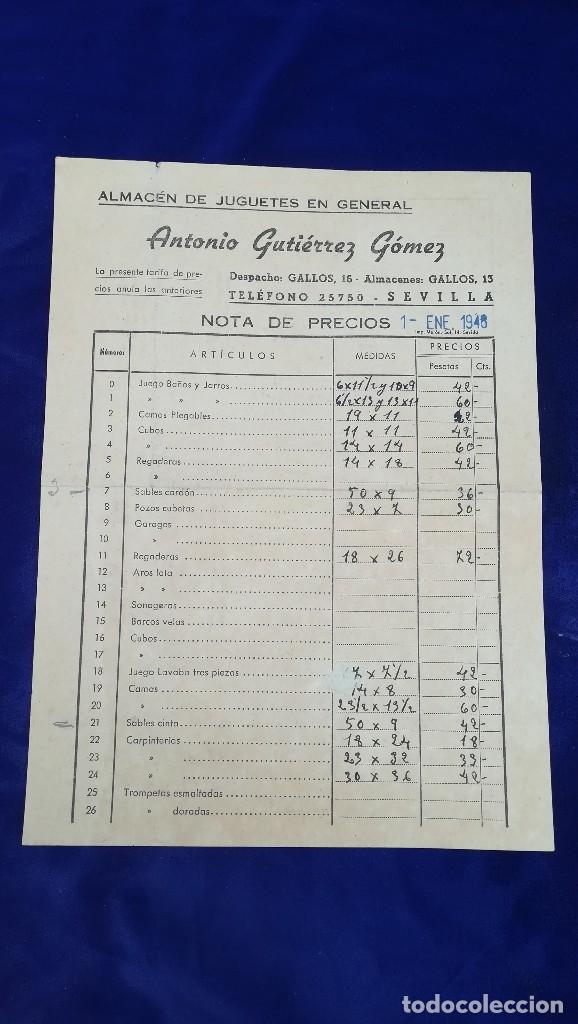 ALMACÉN DE JUGUETES EN GENERAL
Antonio Gutiérrez Gómez
La presente tarifa de pre-
cios anula las anteriores
Despacho: GALLOS, 16 - Almacenes: GALLOS, 13
TELÉFONO 25750 - SEVILLA
NOTA DE PRECIOS 1- ENE 1948
Números ARTÍCULOS MEDIDAS PRECIOS
Pesetas Cts.
0 Juego Baños y Jarros 6x11 1/2 y 10x9 42-
1 » » » 6 1/2x13 y 13x11 60-
2 Camas Plegables 19 x 11
3 Cubos 11 x 11 42-
4 » 14 x 14 60-
5 Regaderas 14 x 18 42-
6 »
7 Sables cordón 50 x 9 36-
8 Pozos cubetas 23 x 7 30-
9 Garages
10 »
11 Regaderas 18 x 26 72-
12 Aros lata
13 » »
14 Sonageros
15 Barcos velas
16 Cubos
17 »
18 Juego Lavabo tres piezas 17 x 7 1/2 42-
19 Camas 14 x 8 30-
20 » 23 1/2 x 13 1/2 60-
21 Sables cinta 50 x 9 42-
22 Carpinterías 18 x 24 18-
23 » 23 x 32 33-
24 » 30 x 36 42-
25 Trompetas esmaltadas
26 » doradas
todocoleccion